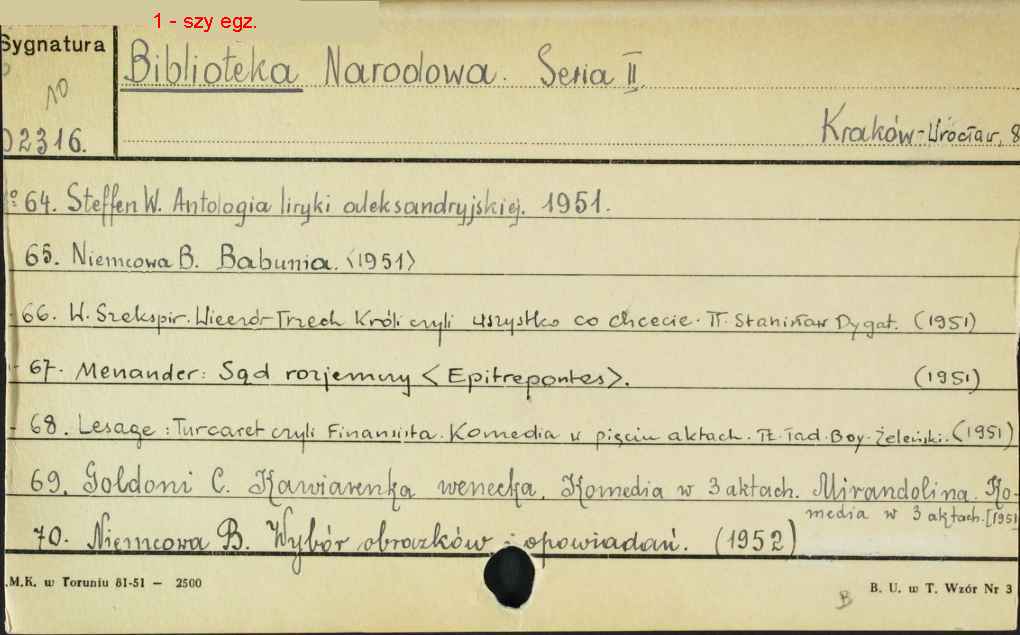 1 - szy egz.
Sygnatura
Biblioteka Narodowa. Seria II.
10
02316.
Kraków-Wrocław, 8
64. Steffen W. Antologia liryki aleksandryjskiej. 1951.
65. Niemcowa B. Babunia. <1951>
66. W. Szekspir. Wieczór Trzech Króli czyli wszystko co chcecie. Tł. Stanisław Dygat. (1951)
67. Menander: Sąd rozjemczy <Epitrepontes>. (1951)
68. Lesage: Turcaret czyli Finansista. Komedia w pięciu aktach. Tł. Tad. Boy-Żeleński. (1951)
69. Goldoni C. Kawiarenka wenecka. Komedia w 3 aktach. Mirandolina. Ko-
media w 3 aktach. [1951
70. Niemcowa B. Wybór obrazków i opowiadań. (1952)
.M.K. w Toruniu 81-51 — 2500
B. U. w T. Wzór Nr 3
B